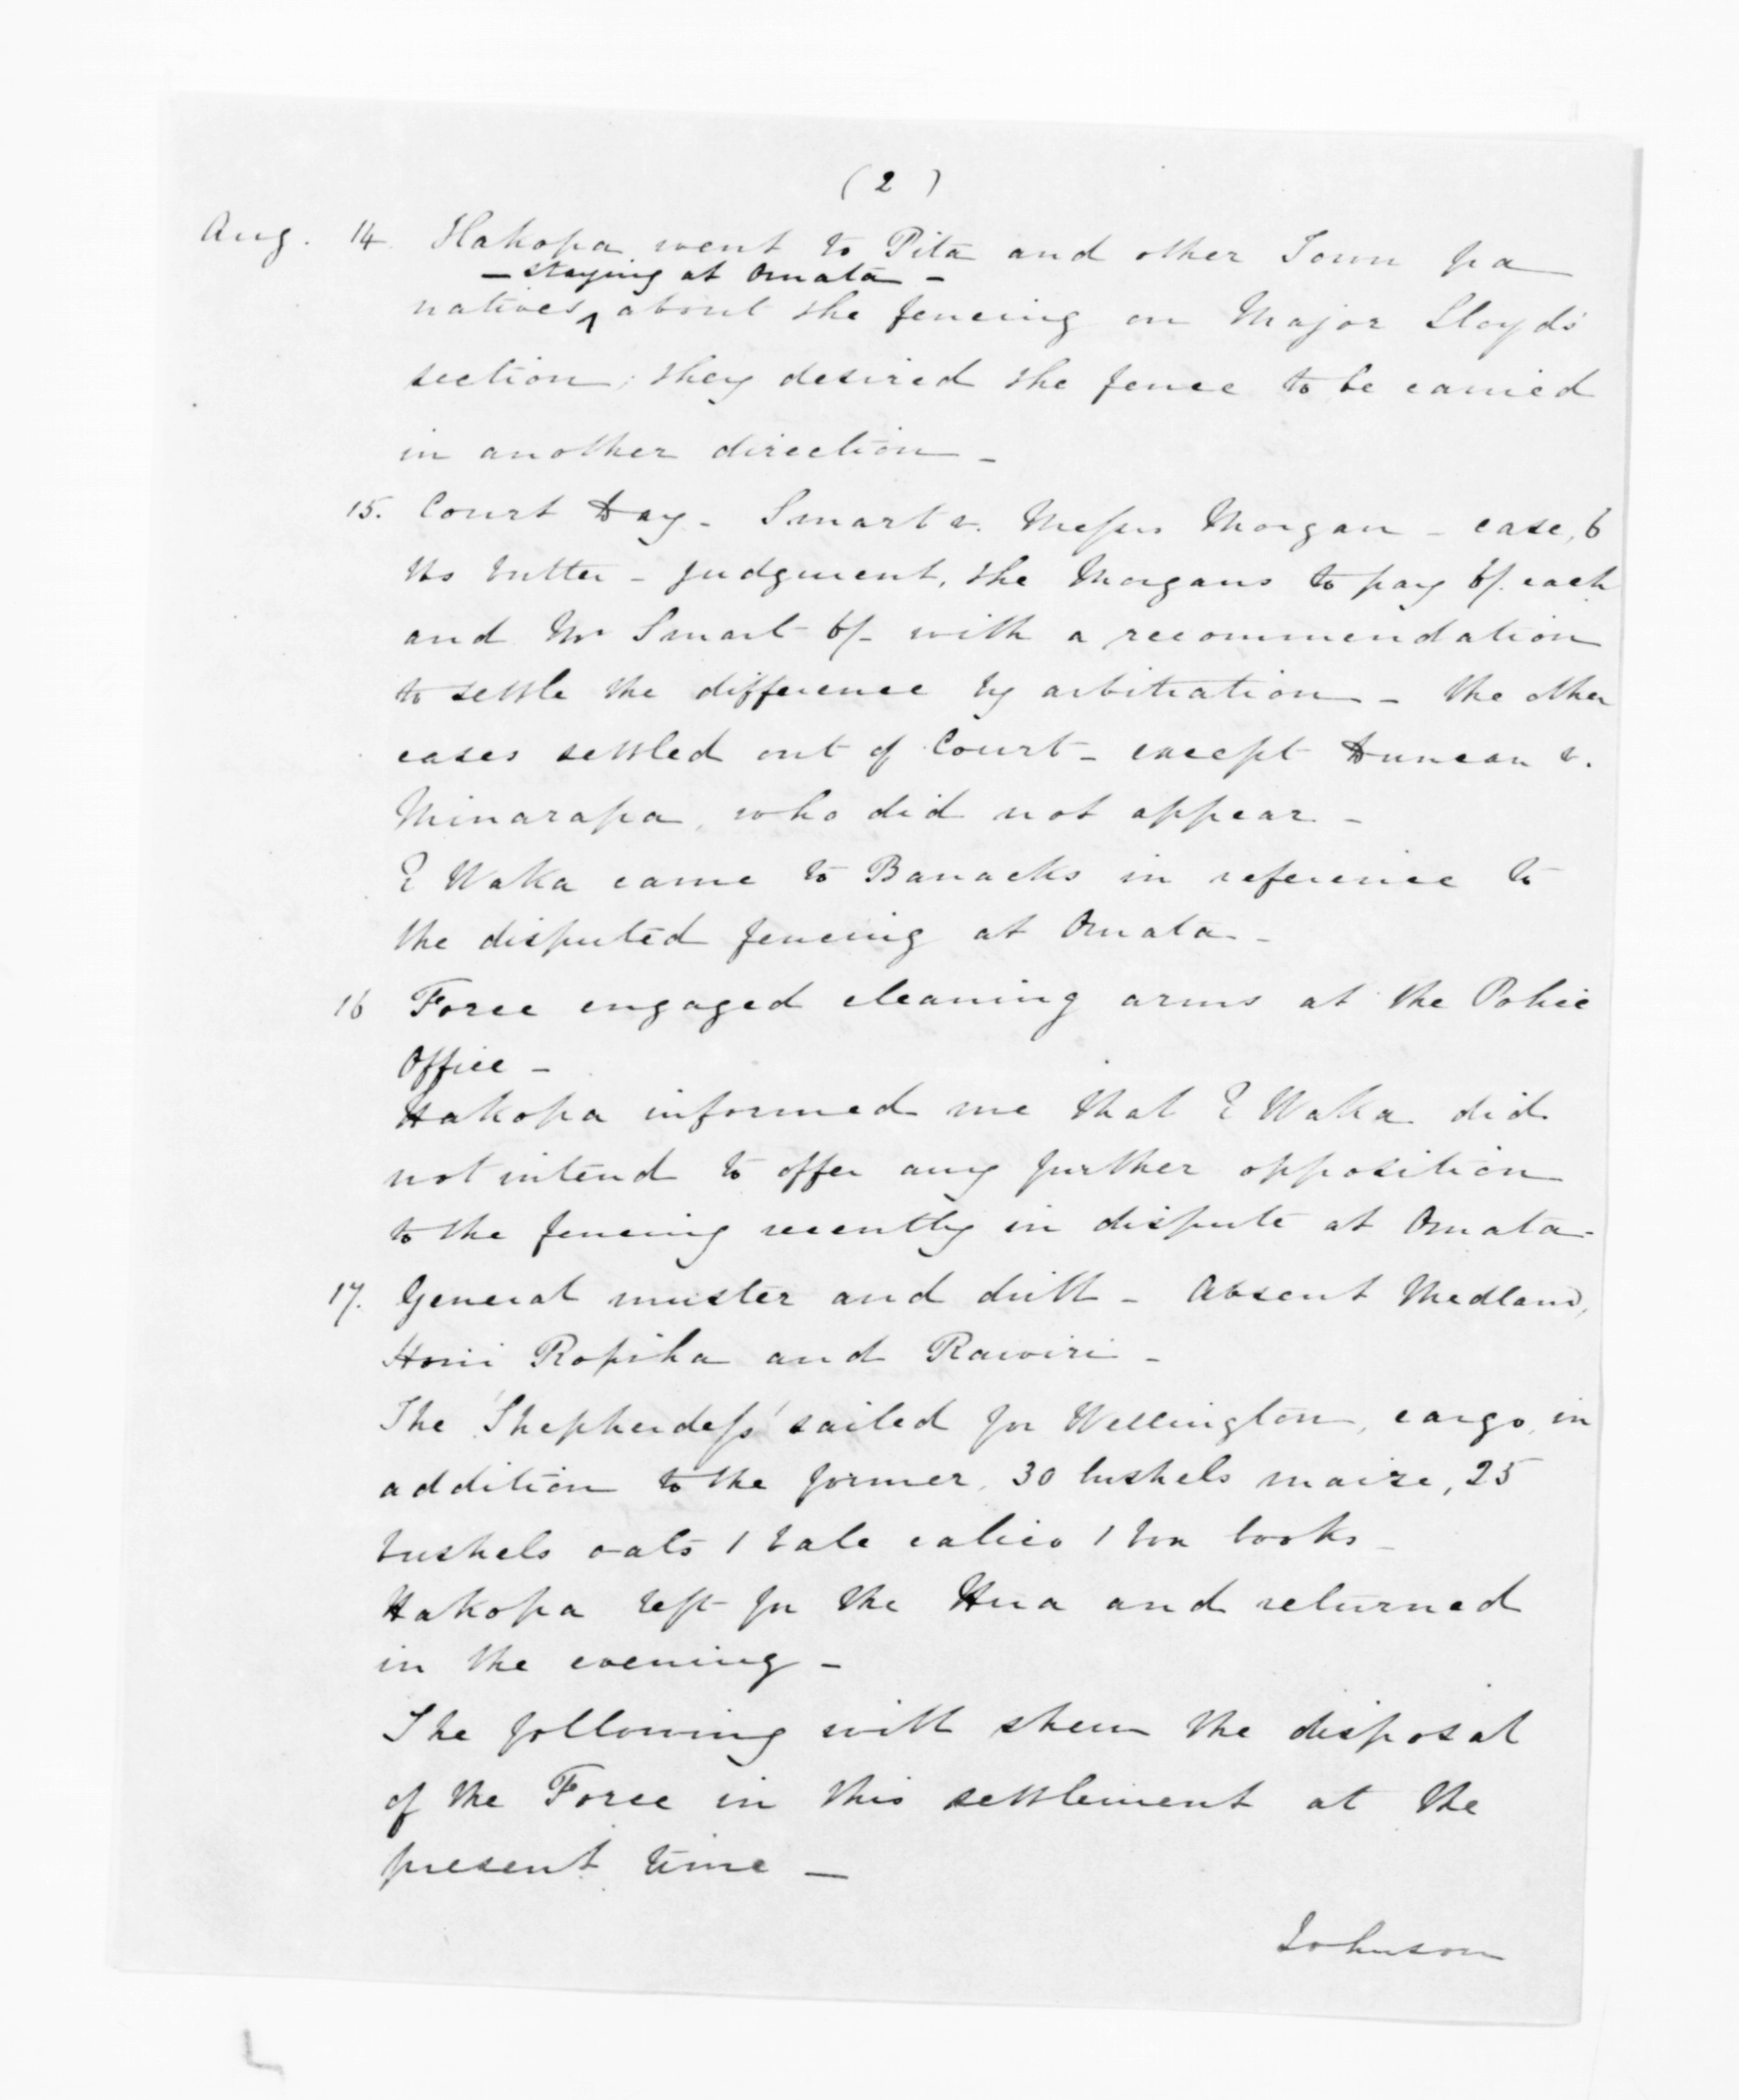 (2)
Aug. 14 Hakopa went to Pita and other Town pa
— staying at Omata —
natives ^ about the fencing on Major Lloyds'
section; they desired the fence to be carried
in another direction —
15. Court Day - Smart v. Messrs Morgan - case, 6
lbs butter - judgment, the Morgans to pay 6/. each
and Mr Smart 6/- with a recommendation
to settle the difference by arbitration - the other
cases settled out of Court - except Duncan v.
Minarapa, who did not appear -
E Waka came to Barracks in reference to
the disputed fencing at Omata -
16 Force engaged cleaning arms at the Police
Office -
Hakopa informed me that E Waka did
not intend to offer any further opposition
to the fencing recently in dispute at Omata -
17. General muster and drill - Absent Medland,
Honi Ropiha and Rawiri -
The 'Shepherdess' sailed for Wellington, cargo, in
addition to the former, 30 bushels maize, 25
bushels oats 1 bale calico 1 box books -
Hakopa left for the Hua and returned
in the evening -
The following will shew the disposal
of the Force in this settlement at the
present time —
Johnson